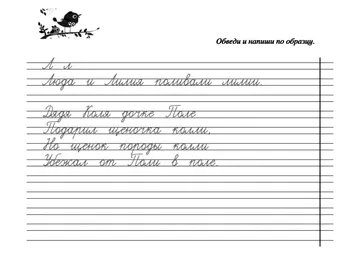 Обведи и напиши по образцу.
Л л
Люда и Лилия поливали лилии.
Дядя Коля дочке Поле
Подарил щеночка колли,
Но щенок породы колли
Убежал от Поли в поле.